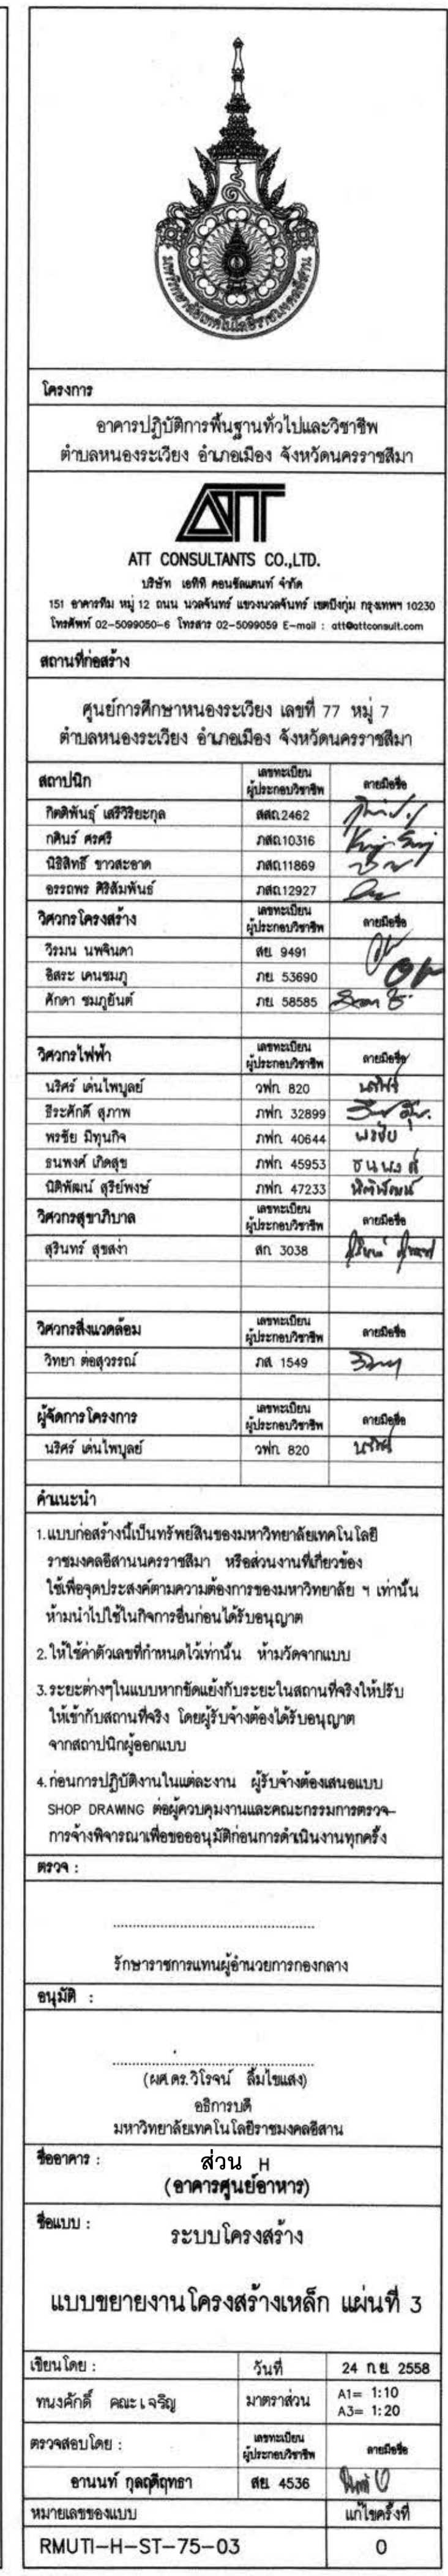 มหาวิทยาลัยเทคโนโลยีราชมงคลอีสาน
โครงการ
อาคารปฏิบัติการพื้นฐานทั่วไปและวิชาชีพ
ตำบลหนองระเวียง อำเภอเมือง จังหวัดนครราชสีมา
ATT
ATT CONSULTANTS CO.,LTD.
บริษัท เอทีที คอนซัลแตนท์ จำกัด
151 อาคารทีม หมู่ 12 ถนน นวลจันทร์ แขวงนวลจันทร์ เขตบึงกุ่ม กรุงเทพฯ 10230
โทรศัพท์ 02-5099050-6 โทรสาร 02-5099059 E-mail : att@attconsult.com
สถานที่ก่อสร้าง
ศูนย์การศึกษาหนองระเวียง เลขที่ 77 หมู่ 7
ตำบลหนองระเวียง อำเภอเมือง จังหวัดนครราชสีมา
สถาปนิก เลขทะเบียน ลายมือชื่อ
ผู้ประกอบวิชาชีพ
กิตติพันธุ์ เสรีวิริยะกุล สสถ.2462
กศินร์ ศรศรี ภสถ.10316
นิธิสิทธิ์ ขาวสะอาด ภสถ.11869
อรรถพร ศิริสัมพันธ์ ภสถ.12927
วิศวกรโครงสร้าง เลขทะเบียน ลายมือชื่อ
ผู้ประกอบวิชาชีพ
วีรมน นพจินดา สย. 9491
อิสระ เคนชมภู ภย. 53690
ศักดา ชมภูยันต์ ภย. 58585
วิศวกรไฟฟ้า เลขทะเบียน ลายมือชื่อ
ผู้ประกอบวิชาชีพ
นริศร์ เด่นไพบูลย์ วฟก. 820 นริศร์
ธีระศักดิ์ สุภาพ ภฟก. 32899
พรชัย มิทุนกิจ ภฟก. 40644 พรชัย
ธนพงศ์ เกิดสุข ภฟก. 45953 ธนพงศ์
นิติพัฒน์ สุริย์พงษ์ ภฟก. 47233 นิติพัฒน์
วิศวกรสุขาภิบาล เลขทะเบียน ลายมือชื่อ
ผู้ประกอบวิชาชีพ
สุรินทร์ สุขสง่า สก. 3038
วิศวกรสิ่งแวดล้อม เลขทะเบียน ลายมือชื่อ
ผู้ประกอบวิชาชีพ
วิทยา ต่อสุวรรณ์ ภส. 1549
ผู้จัดการโครงการ เลขทะเบียน ลายมือชื่อ
ผู้ประกอบวิชาชีพ
นริศร์ เด่นไพบูลย์ วฟก. 820 นริศร์
คำแนะนำ
1.แบบก่อสร้างนี้เป็นทรัพย์สินของมหาวิทยาลัยเทคโนโลยี
ราชมงคลอีสานนครราชสีมา หรือส่วนงานที่เกี่ยวข้อง
ใช้เพื่อจุดประสงค์ตามความต้องการของมหาวิทยาลัย ฯ เท่านั้น
ห้ามนำไปใช้ในกิจการอื่นก่อนได้รับอนุญาต
2.ให้ใช้ค่าตัวเลขที่กำหนดไว้เท่านั้น ห้ามวัดจากแบบ
3.ระยะต่างๆในแบบหากขัดแย้งกับระยะในสถานที่จริงให้ปรับ
ให้เข้ากับสถานที่จริง โดยผู้รับจ้างต้องได้รับอนุญาต
จากสถาปนิกผู้ออกแบบ
4.ก่อนการปฏิบัติงานในแต่ละงาน ผู้รับจ้างต้องเสนอแบบ
SHOP DRAWING ต่อผู้ควบคุมงานและคณะกรรมการตรวจ-
การจ้างพิจารณาเพื่อขออนุมัติก่อนการดำเนินงานทุกครั้ง
ตรวจ :
รักษาราชการแทนผู้อำนวยการกองกลาง
อนุมัติ :
(ผศ.ดร.วิโรจน์ ลิ้มไขแสง)
อธิการบดี
มหาวิทยาลัยเทคโนโลยีราชมงคลอีสาน
ชื่ออาคาร : ส่วน H
(อาคารศูนย์อาหาร)
ชื่อแบบ : ระบบโครงสร้าง
แบบขยายงานโครงสร้างเหล็ก แผ่นที่ 3
เขียนโดย : วันที่ 24 ก.ย. 2558
ทนงศักดิ์ คณะเจริญ มาตราส่วน A1= 1:10
A3= 1:20
ตรวจสอบโดย : เลขทะเบียน ลายมือชื่อ
ผู้ประกอบวิชาชีพ
อานนท์ กุลฤดีฤทธา สย. 4536
หมายเลขของแบบ แก้ไขครั้งที่
RMUTI-H-ST-75-03 0